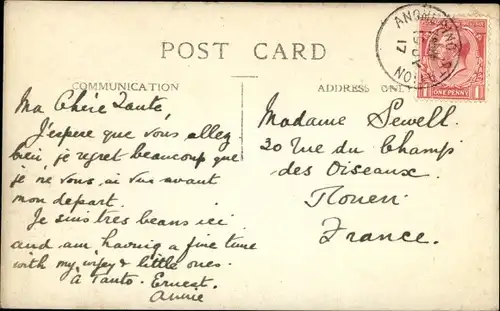 POST CARD
COMMUNICATION
ADDRESS ONLY
ONE PENNY
Ma Chère Tante,
J'espere que vous allez
bein, je regret beaucoup que
je ne vous ai vue avant
mon depart.
Je suis tres beans ici
and am having a fine time
with my wifey & little ones.
à Tanto. Ernest.
Annie
Madame Sewell.
20 Rue du Champ
des Oiseaux.
Rouen
France.